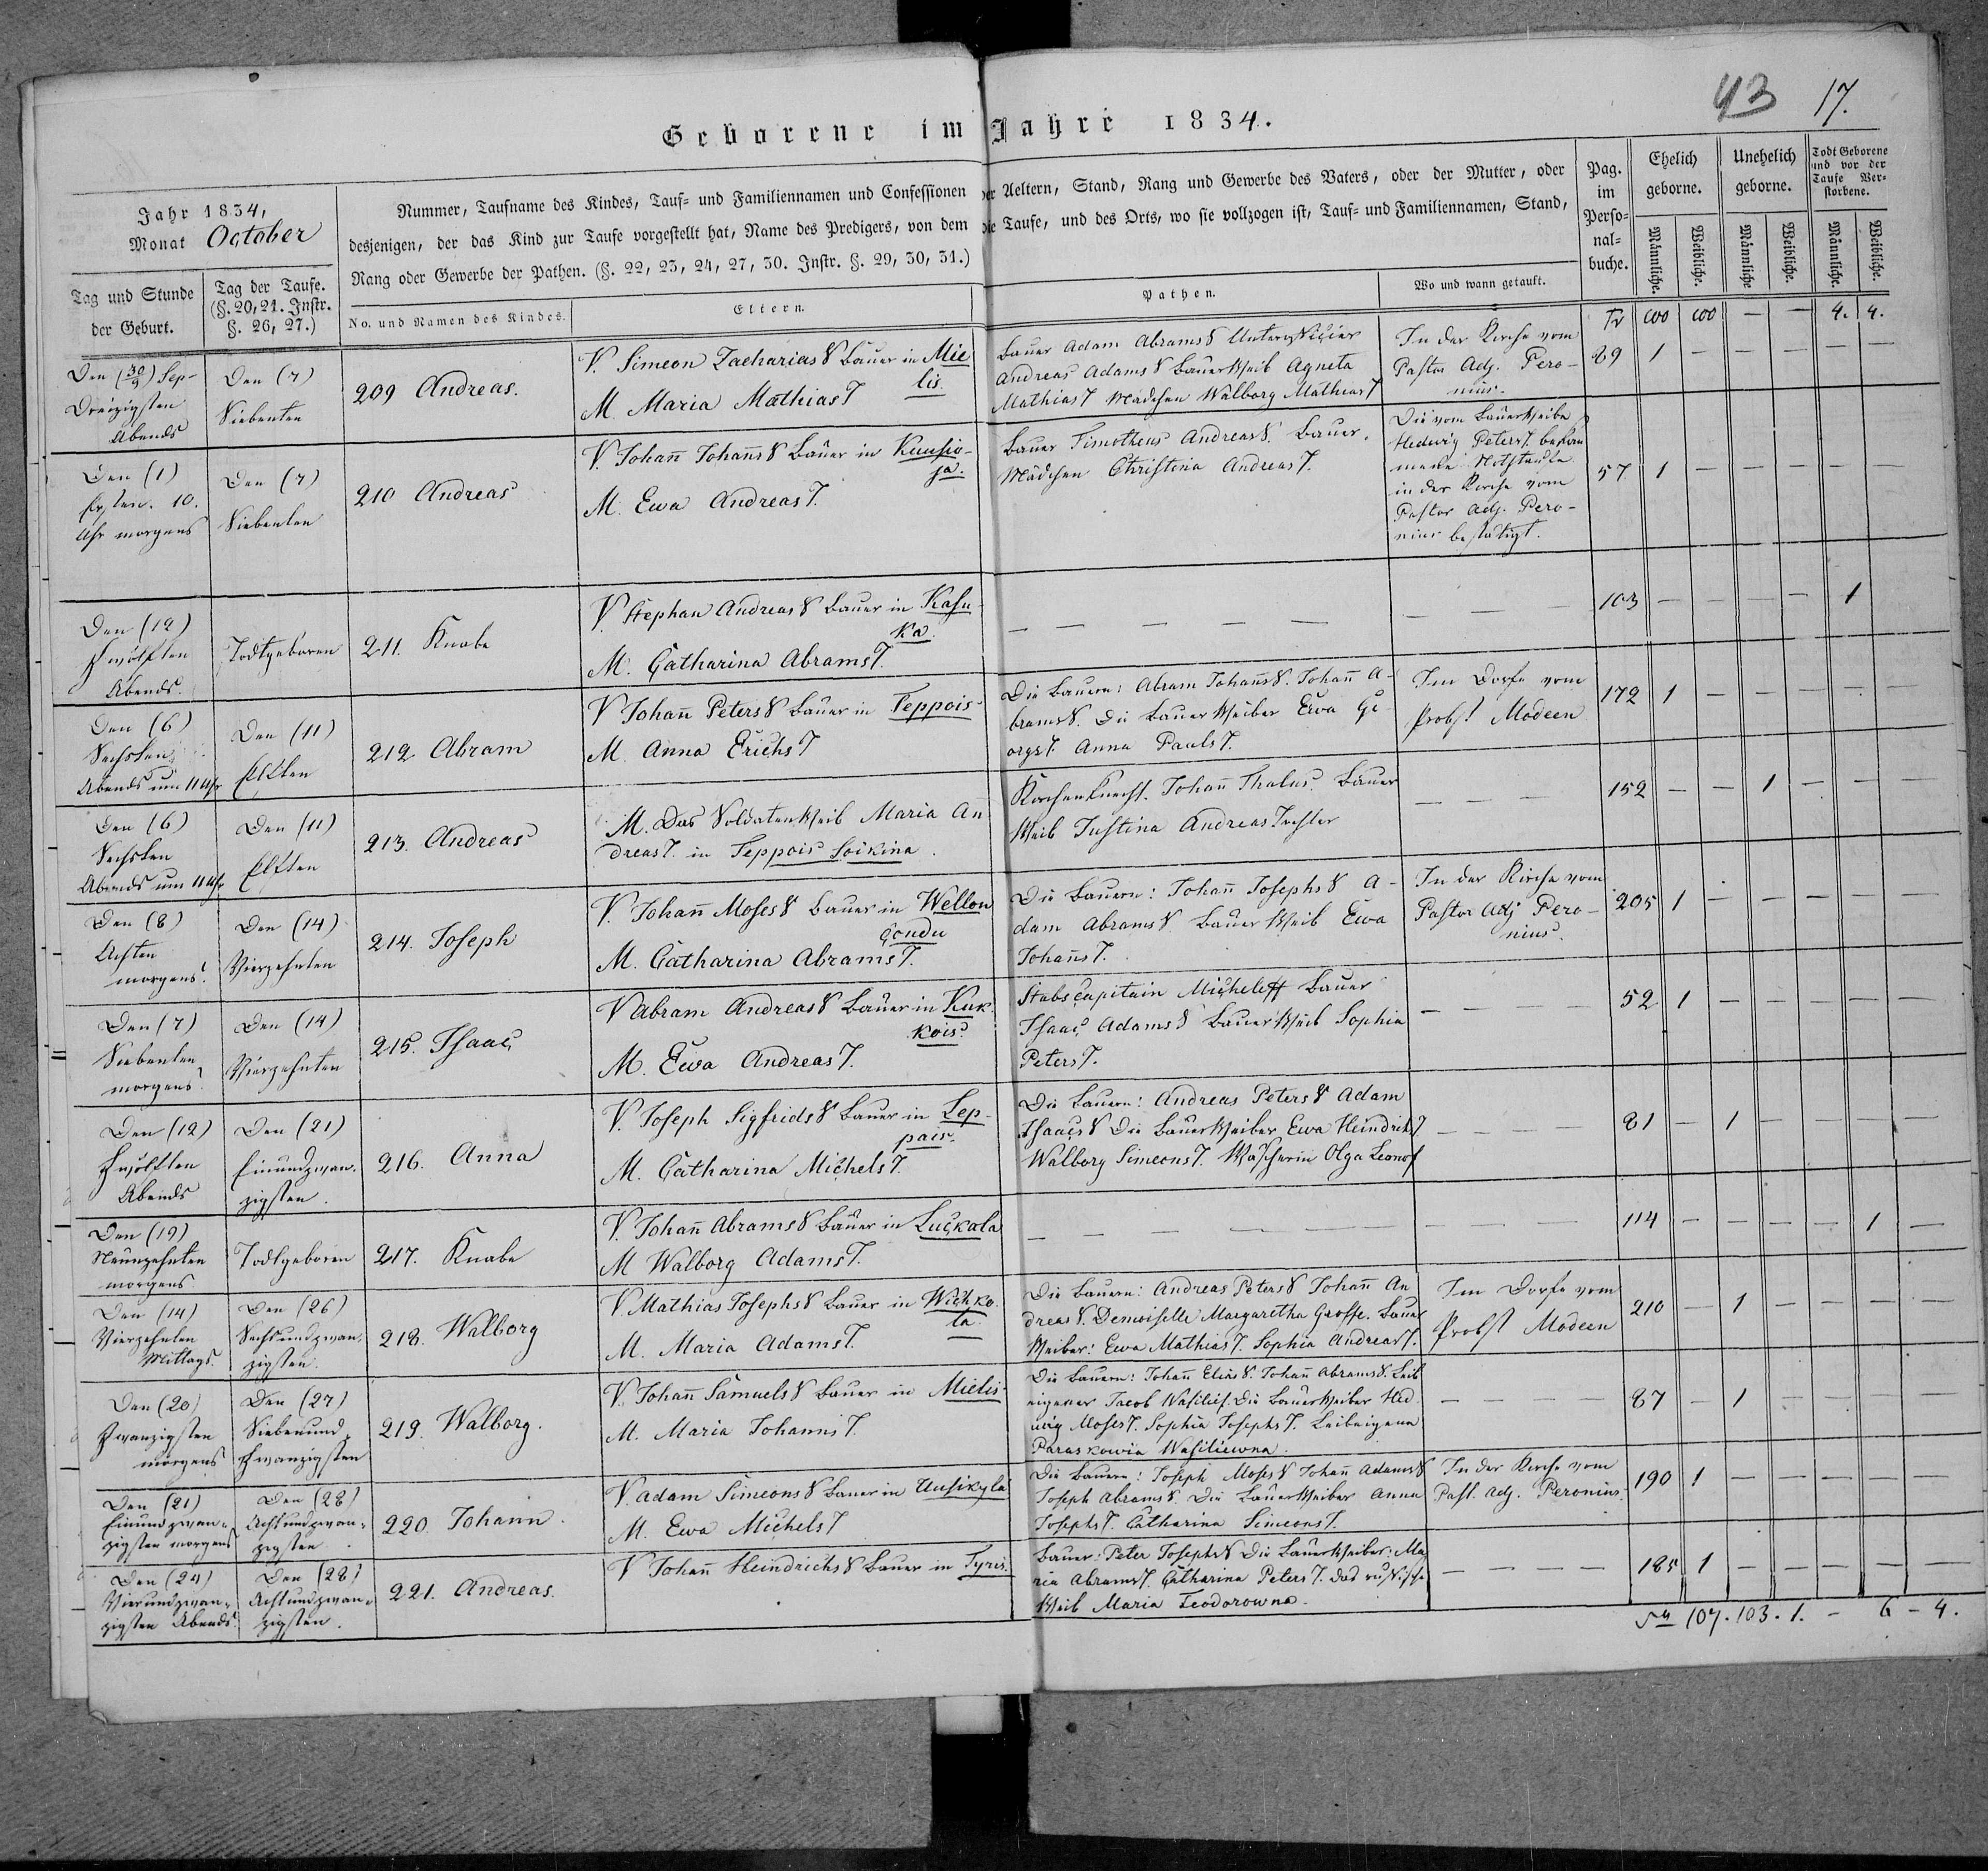 43 17.
Geborene im Jahre 1834.
Jahr 1834,
Monat October
Nummer, Taufname des Kindes, Tauf- und Familiennamen und Confessionen der Aeltern, Stand, Rang und Gewerbe des Vaters, oder der Mutter, oder
desjenigen, der das Kind zur Taufe vorgestellt hat, Name des Predigers, von dem die Taufe, und des Orts, wo sie vollzogen ist, Tauf- und Familiennamen, Stand,
Rang oder Gewerbe der Pathen. (§. 22, 23, 24, 27, 30. Instr. §. 29, 30, 31.)
Pag.
im
Perso-
nal-
buche.
Ehelich
geborne.
Unehelich
geborne.
Todt Geborene
und vor der
Taufe Ver-
storbene.
Männliche.
Weibliche.
Männliche
Weibliche.
Männliche.
Weibliche.
Tag und Stunde
der Geburt.
Tag der Taufe.
(§. 20, 21. Instr.
§. 26, 27.)
No. und Namen des Kindes.
Eltern.
Pathen.
Wo und wann getauft.
Tr 100 100 — — 4. 4.
Den (30/9) Sep-
Dreizigsten
Abends
Den (7)
Siebenten
209 Andreas.
V. Simeon Zacharias S Bauer in Mie
lis.
M Maria Mathias T
Bauer Adam Abrams S Unterofficier
Andreas Adams S Bauerweib Agneta
Mathias T Mädchen Walborg Mathias T
In der Kirche vom
Pastor Adj. Pero-
nius.
89 1 — — — — —
Den (1)
Ersten. 10.
Uhr morgens
Den (7)
Siebenten
210 Andreas
V. Johan̄ Johan̄s S Bauer in Kuusio-
ja.
M. Ewa Andreas T.
Bauer Timotheus Andreas S. Bauer.
Mädchen Christina Andreas T.
Die vom Bauerweibe
Hedwig Peters T. bekom
mene Nothtaufe
in der Kirche vom
Pastor Adj. Pero-
nius bestätigt.
57. 1 — — — — —
Den (12)
Zwölften
Abends.
Todtgeboren
211. Knabe
V. Stephan Andreas S Bauer in Kasu-
ka.
M. Catharina Abrams T.
— — — — —
— —
103 — — — — 1
Den (6)
Sechsten
Abends um 11 Uhr
Den (11)
Elften
212 Abram
V Johan̄ Peters S Bauer in Teppois
M. Anna Erichs T
Die Bauern: Abram Johan̄s S. Johan̄ A-
brams S. Die Bauerweiber Ewa Ge-
orgs T. Anna Pauls T.
Im Dorfe vom
Probst Modeen
172 1 — — — —
Den (6)
Sechsten
Abends um 11 Uhr
Den (11)
Elften
213. Andreas
M. Das Soldatenweib Maria An
dreas T. in Teppois Soikina.
Kirchenknecht Johan̄ Thalus. Bauer
Weib Justina Andreas Tochter
— — —
152 — — 1 — — —
Den (8)
Achten
morgens.
Den (14)
Vierzehnten
214. Joseph
V. Johan̄ Moses S Bauer in Wellon
Gondu
M. Catharina Abrams T.
Die Bauern: Johan̄ Josephs S A-
dam Abrams S. Bauer Weib Ewa
Johan̄s T.
In der Kirche vom
Pastor Adj Pero-
nius.
205 1 — — — — —
Den (7)
Siebenten
morgens
Den (14)
Vierzehnten
215. Isaac
V Abram Andreas S Bauer in Kuk-
kois.
M. Ewa Andreas T.
Stabscapitain Micheleff Bauer
Isaac Adams S Bauerweib Sophia
Peters T.
— — — —
52 1 — — — — —
Den (12)
Zwölften
Abends
Den (21)
Einundzwan-
zigsten.
216. Anna
V. Joseph Sigfrids S Bauer in Lep-
pais.
M. Catharina Michels T.
Die Bauern: Andreas Peters S Adam
Isaacs S Die Bauerweiber Ewa Heindrichs T
Walborg Simeons T. Wäscherin Olga Leonof
— — — —
81 — 1 — — — —
Den (19)
Neunzehnten
morgens
Todtgeboren
217. Knabe
V. Johan̄ Abrams S Bauer in Luckala
M Walborg Adams T.
— — — — —
— — —
114 — — — — 1 —
Den (14)
Vierzehnten
Mittags.
Den (26)
Sechsundzwan-
zigsten.
218. Walborg
V Mathias Josephs S Bauer in Wichko-
la.
M. Maria Adams T.
Die Bauern: Andreas Peters S Johan̄ An
dreas S. Demoiselle Margaretha Grosse. Bauer
Weiber: Ewa Mathias T. Sophia Andreas T.
Im Dorfe vom
Probst Modeen
210 — 1 — — — —
Den (20)
Zwanzigsten
morgens
Den (27)
Siebenund
Zwanzigsten
219. Walborg.
V. Johan̄ Samuels S Bauer in Mielis
M. Maria Johannis T.
Die Bauern: Johan̄ Elias S. Johan̄ Abrams S. Leib
eigener Jacob Wasilief. Die Bauerweiber Hed
wig Moses T. Sophia Josephs T. Leibeigena
Paraskowia Wasiliewna.
— — — —
87 — 1 — — — —
Den (21)
Einundzwan-
zigsten morgens
Den (28)
Achtundzwan-
zigsten.
220. Johann.
V. Adam Simeons S Bauer in Uusikylä
M. Ewa Michels T
Die Bauern: Joseph Moses S Johan̄ Adams S
Joseph Abrams S. Die Bauerweiber Anna
Josephs T. Catharina Simeons T.
In der Kirche vom
Past. Adj. Peronius.
190 1 — — — — —
Den (24)
Vierundzwan-
zigsten Abends.
Den (28)
Achtundzwan-
zigsten.
221. Andreas.
V Johan̄ Heindrichs S Bauer in Tyris.
Bauer: Peter Josephs S Die Bauerweiber: Ma
ria Abrams T. Catharina Peters T. Das russische
Weib Maria Feodorowna.
— — — —
185 1 — — — — —
Sa 107. 103. 1. — 6 — 4.